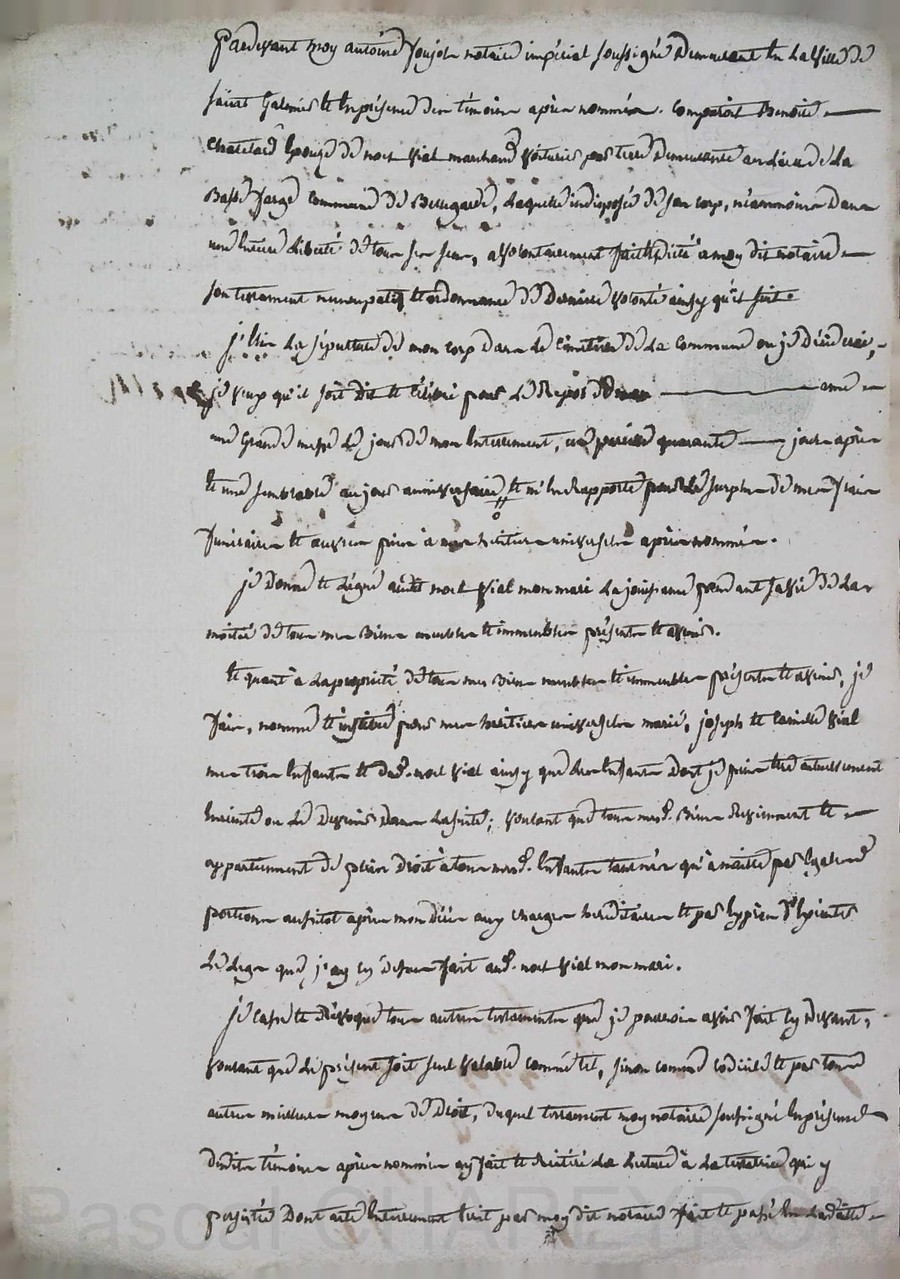 Pardevant moy antoine Soujol notaire impérial soussigné demeurant en la ville de
saint Galmier et en présence des témoins après nommés. Comparoit Benoite
Chatelard épouse de noel vial marchand voiturier par terre demeurante au lieu de la
Basse farge commune de Bellegarde, laquelle indisposée de son corp, néanmoins dans
une entière liberté de tous ses sens, a volontairement fait et dicté a moy dit notaire
son testament nuncupatif et ordonnance de dernière volonté ainsy qu'il suit.
j'élis la sépulture de mon corp dans le cimetière de la commune ou je décéderai,
je veux qu'il soit dit et célébré pour le Repos de mon ame
une Grande messe le jour de mon enterrement, une pareille quarante jours après
et une semblable au jour anniversaire, et m'en Rapporte pour le surplus de mes frais
funéraires et œuvres pies à mes héritiers universels après nommés.
je donne et lègue audit noel vial mon mari la jouissance pendant sa vie de la
moitié de tous mes Biens meubles et immeubles présents et avenir.
et quant à la propriété de tous mes Biens meubles et immeubles présents et avenir, je
fais, nomme et institue pour mes héritiers universels marie, joseph et Camille vial
mes trois enfants et dud. noel vial ainsy que les enfants dont je puis être actuellement
enceinte ou le devenir dans la suite; voulant que tous mesd. Biens deviennent et
appartiennent de plein droit à tous mesd. enfants tant nés qu'à naitre par égales
portions aussitot après mon décès aux charges héréditaires et par exprès d'exécuter
le legs que j'ay cy dessus fait aud. noel vial mon mari.
je casse et Révoque tous autres testaments que je pourrois avoir fait cy devant,
voulant que le présent soit seul valable comme tel, sinon comme codicile et par tous
autres meilleurs moyens de Droit, duquel testament moy notaire soussigné en présence
desdits témoins après nommés ay fait et réitéré la lecture à la testatrice qui y
persiste Dont acte entièrement écrit par moy dit notaire fait et passé en ladite
Pascal CHAREYRON